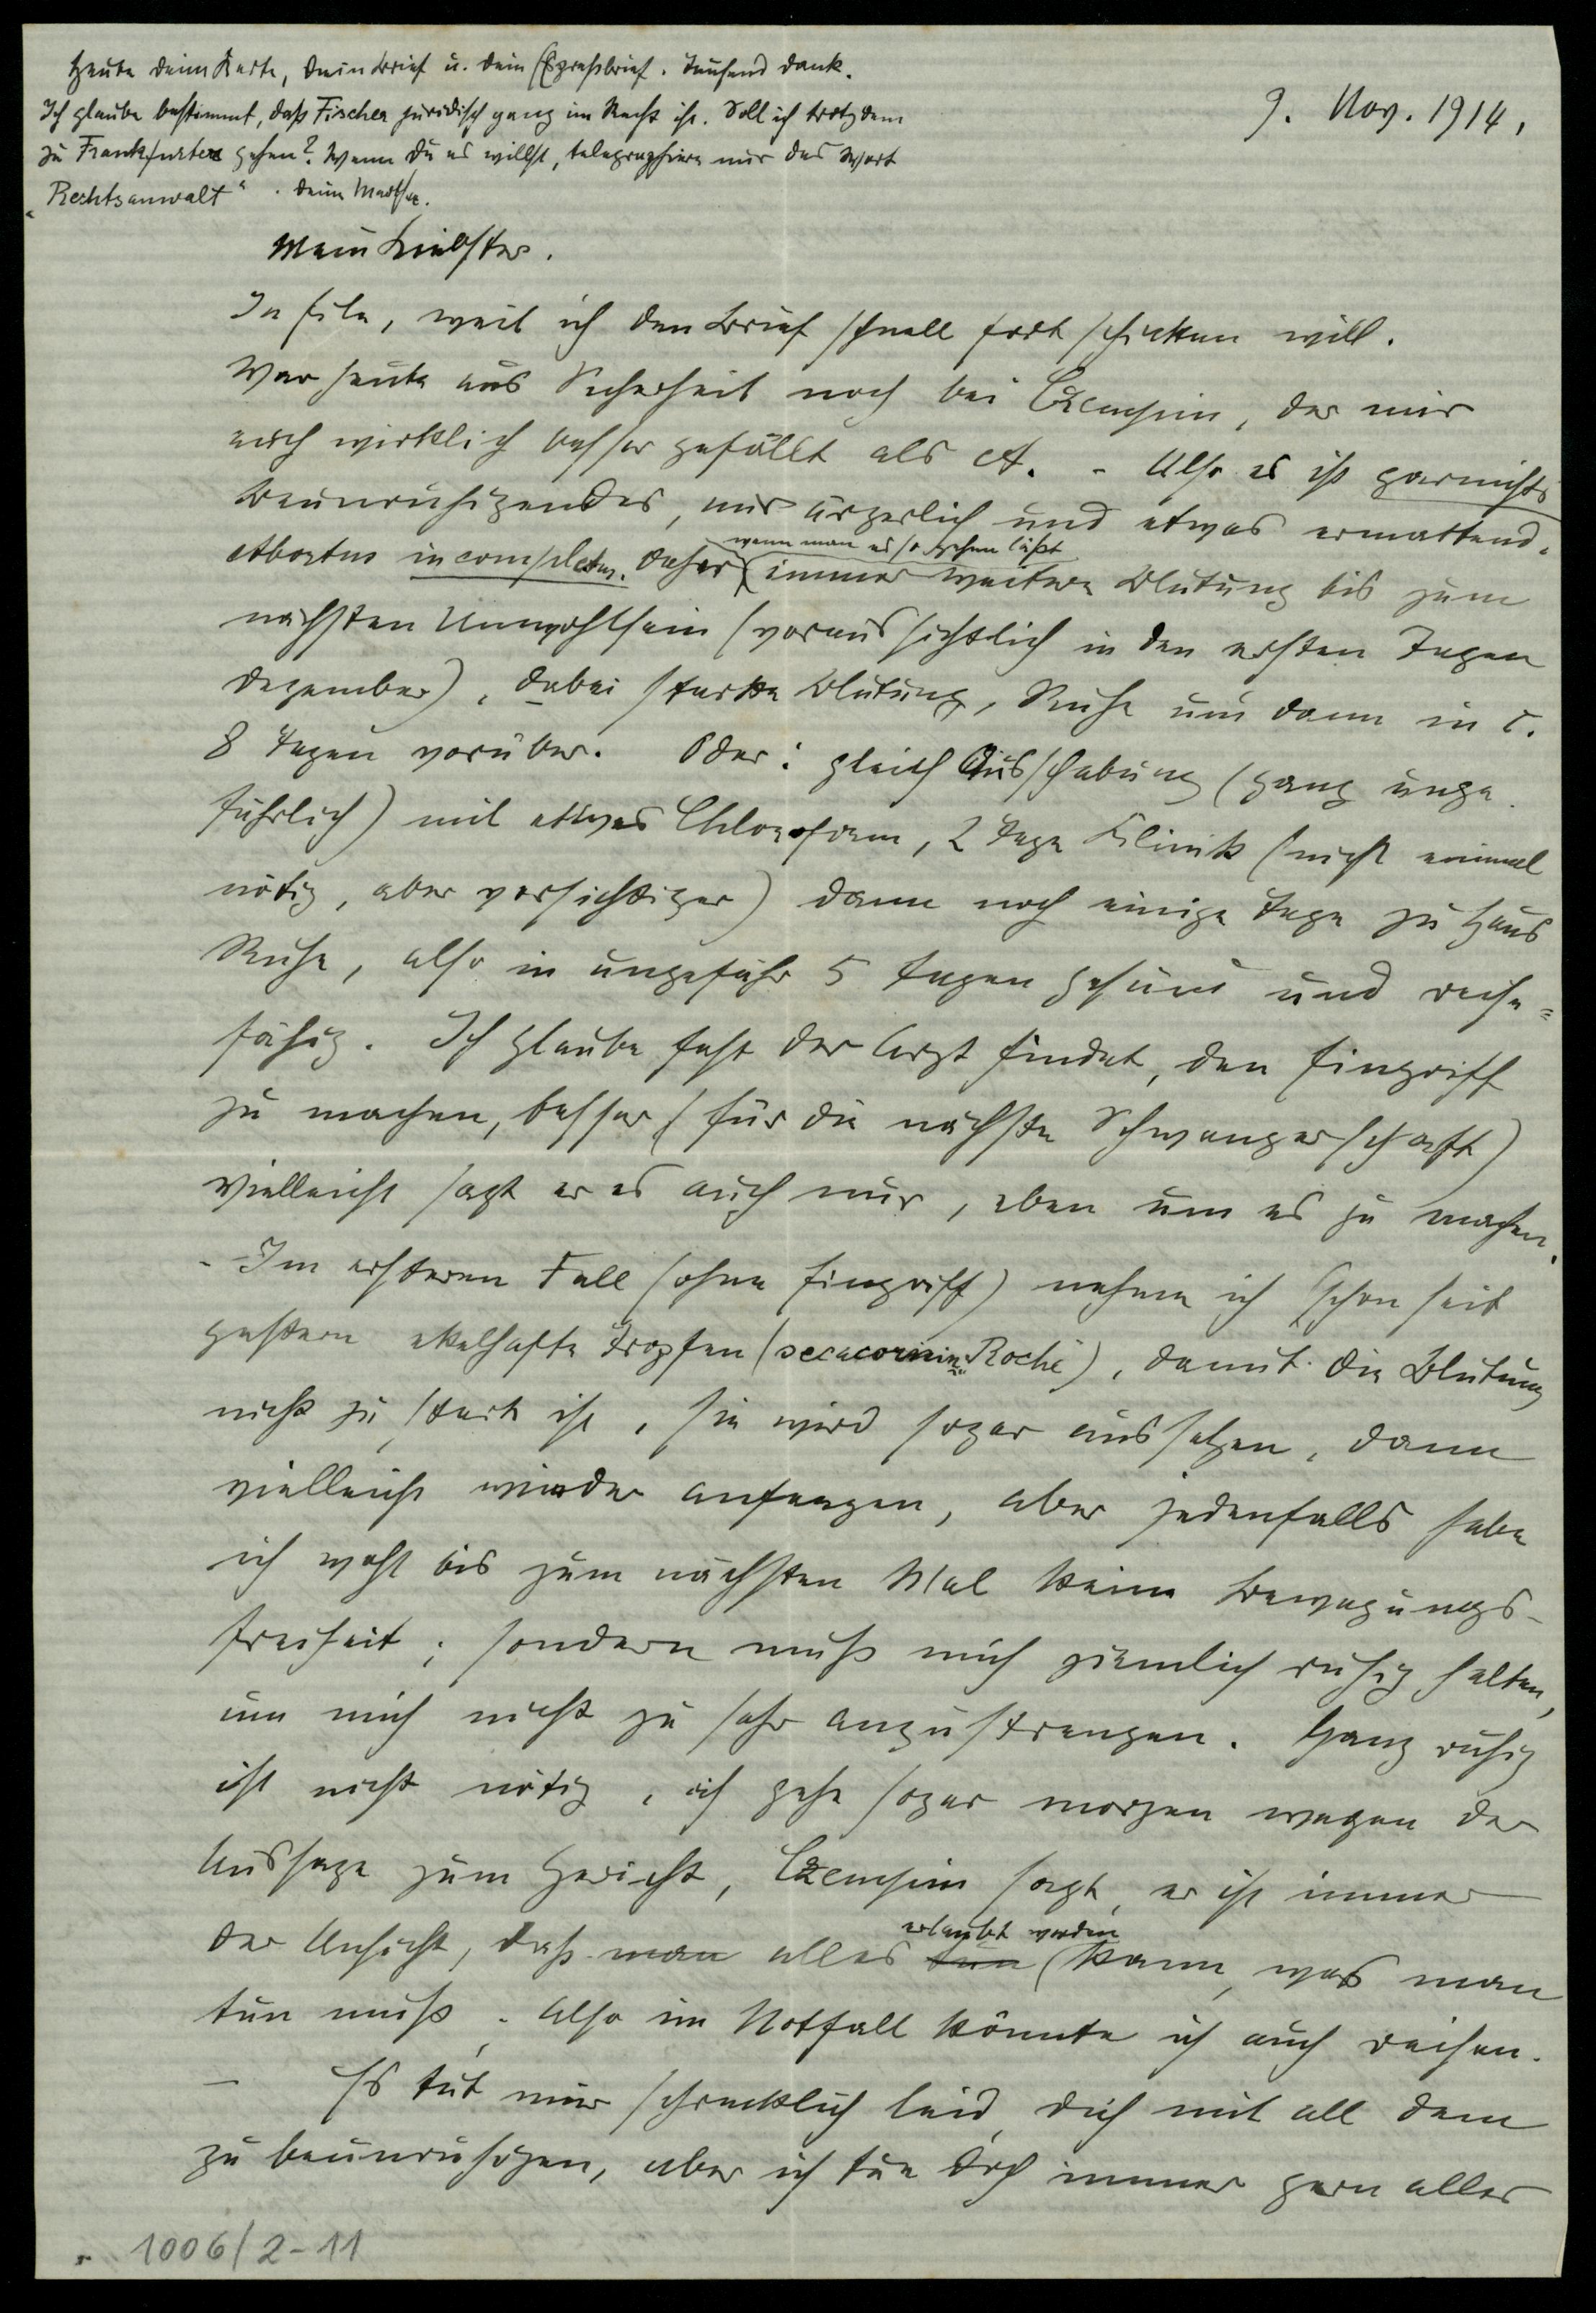 Heute deine Karte, dein Brief u. dein Expreßbrief. Tausend Dank.
Ich glaube bestimmt, daß Fischer juridisch ganz im Recht ist. Soll ich trotzdem
zu Frankfurter gehen? Wenn du es willst, telegraphiere nur das Wort
„Rechtsanwalt“. Deine Marthe.
9. Nov. 1914.
Mein Liebster.
In Eile, weil ich den Brief schnell fort schicken will.
War heute aus Sicherheit noch bei Czempin, der mir
auch wirklich besser gefällt als A. - Also es ist garnichts
Beunruhigendes, nur ärgerlich und etwas ermattend.
wenn man es so gehen läßt
Abortus incompletus. Daher immer weitere Blutung bis zum
nächsten Unwohlsein (voraussichtlich in den ersten Tagen
Dezember), dabei starke Blutung, Ruhe und dann in c.
8 Tagen vorüber. Oder: gleich Ausschabung (ganz unge-
fährlich) mit etwas Chloroform, 2 Tage Klinik (nicht einmal
nötig, aber vorsichtiger) dann noch einige Tage zu Haus
Ruhe, also in ungefähr 5 Tagen gesund und reise=
fähig. Ich glaube fast der Arzt findet, den Eingriff
zu machen, besser (für die nächste Schwangerschaft)
vielleicht sagt er es auch nur, eben um es zu machen.
- Im ersteren Fall (ohne Eingriff) nehme ich schon seit
gestern ekelhafte Tropfen (secacornin „Roche“), damit die Blutung
nicht zu stark ist, sie wird sogar aussetzen, dann
vielleicht wieder anfangen, aber jedenfalls habe
ich wohl bis zum nächsten Mal keine Bewegungs-
freiheit; sondern muß mich ziemlich ruhig halten,
um mich nicht zu sehr anzustrengen. Ganz ruhig
ist nicht nötig, ich gehe sogar morgen wegen der
Aussage zum Gericht, Czempin sagt, er ist immer
erlaubt werden
der Ansicht, daß man alles tun kann, was man
tun muß. Also im Notfall könnte ich auch reisen.
- Es tut mir schrecklich leid, dich mit all dem
zu beunruhigen, aber ich tue doch immer gern alles
1006/2-11